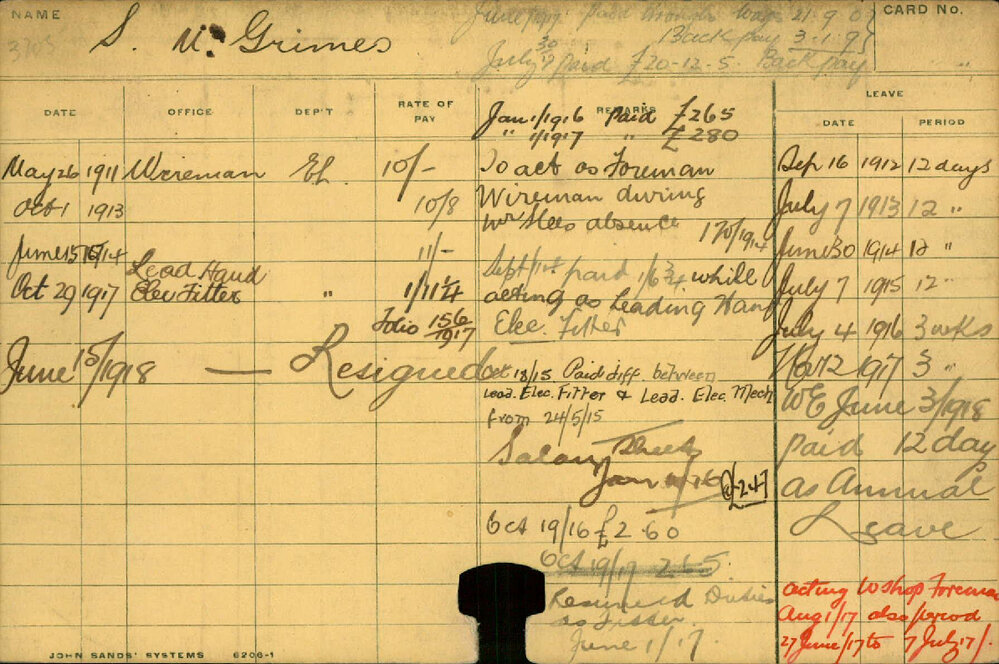 NAME
S. Mc Grimes
CARD No.
June 1919 paid through Wage 21.9.0
Back pay 3.1.9
July 30 Paid £20-12-5. Back pay
DATE OFFICE DEP'T RATE OF PAY REMARKS LEAVE
DATE PERIOD
Jan 1/1916 Paid £265
" 1/1917 " £280
May 26 1911 Wireman El. 10/-
Oct 1 1913 10/8
June 15 1914 11/-
Lead Hand
Oct 29 1917 Elec Fitter " 1/11¼
Folio 156/1917
June 15/1918 — Resigned
To act as Foreman
Wireman during
Mr absence 170/1914
Sept 1/15 paid 1/6¾ while
acting as Leading Hand
Elec. Fitter
Oct 18/15. Paid diff. between
Lead. Elec. Fitter & Lead. Elec. Mech
from 24/5/15
Salary Sheet
Jan /16 @£247
Oct 19/16 £260
Oct 19/17 265
Resumed Duties
as Fitter
June 1/17.
Sep 16 1912 12 days
July 7 1913 12 "
June 30 1914 12 "
July 7 1915 12 "
July 4 1916 3 wks
1917 3 "
WE June 3/1918
paid 12 day
as Annual
Leave
acting Wshop Foreman
Aug 1/17 also period
27 June/17 to 7 July/17/.
JOHN SANDS' SYSTEMS 6206-1